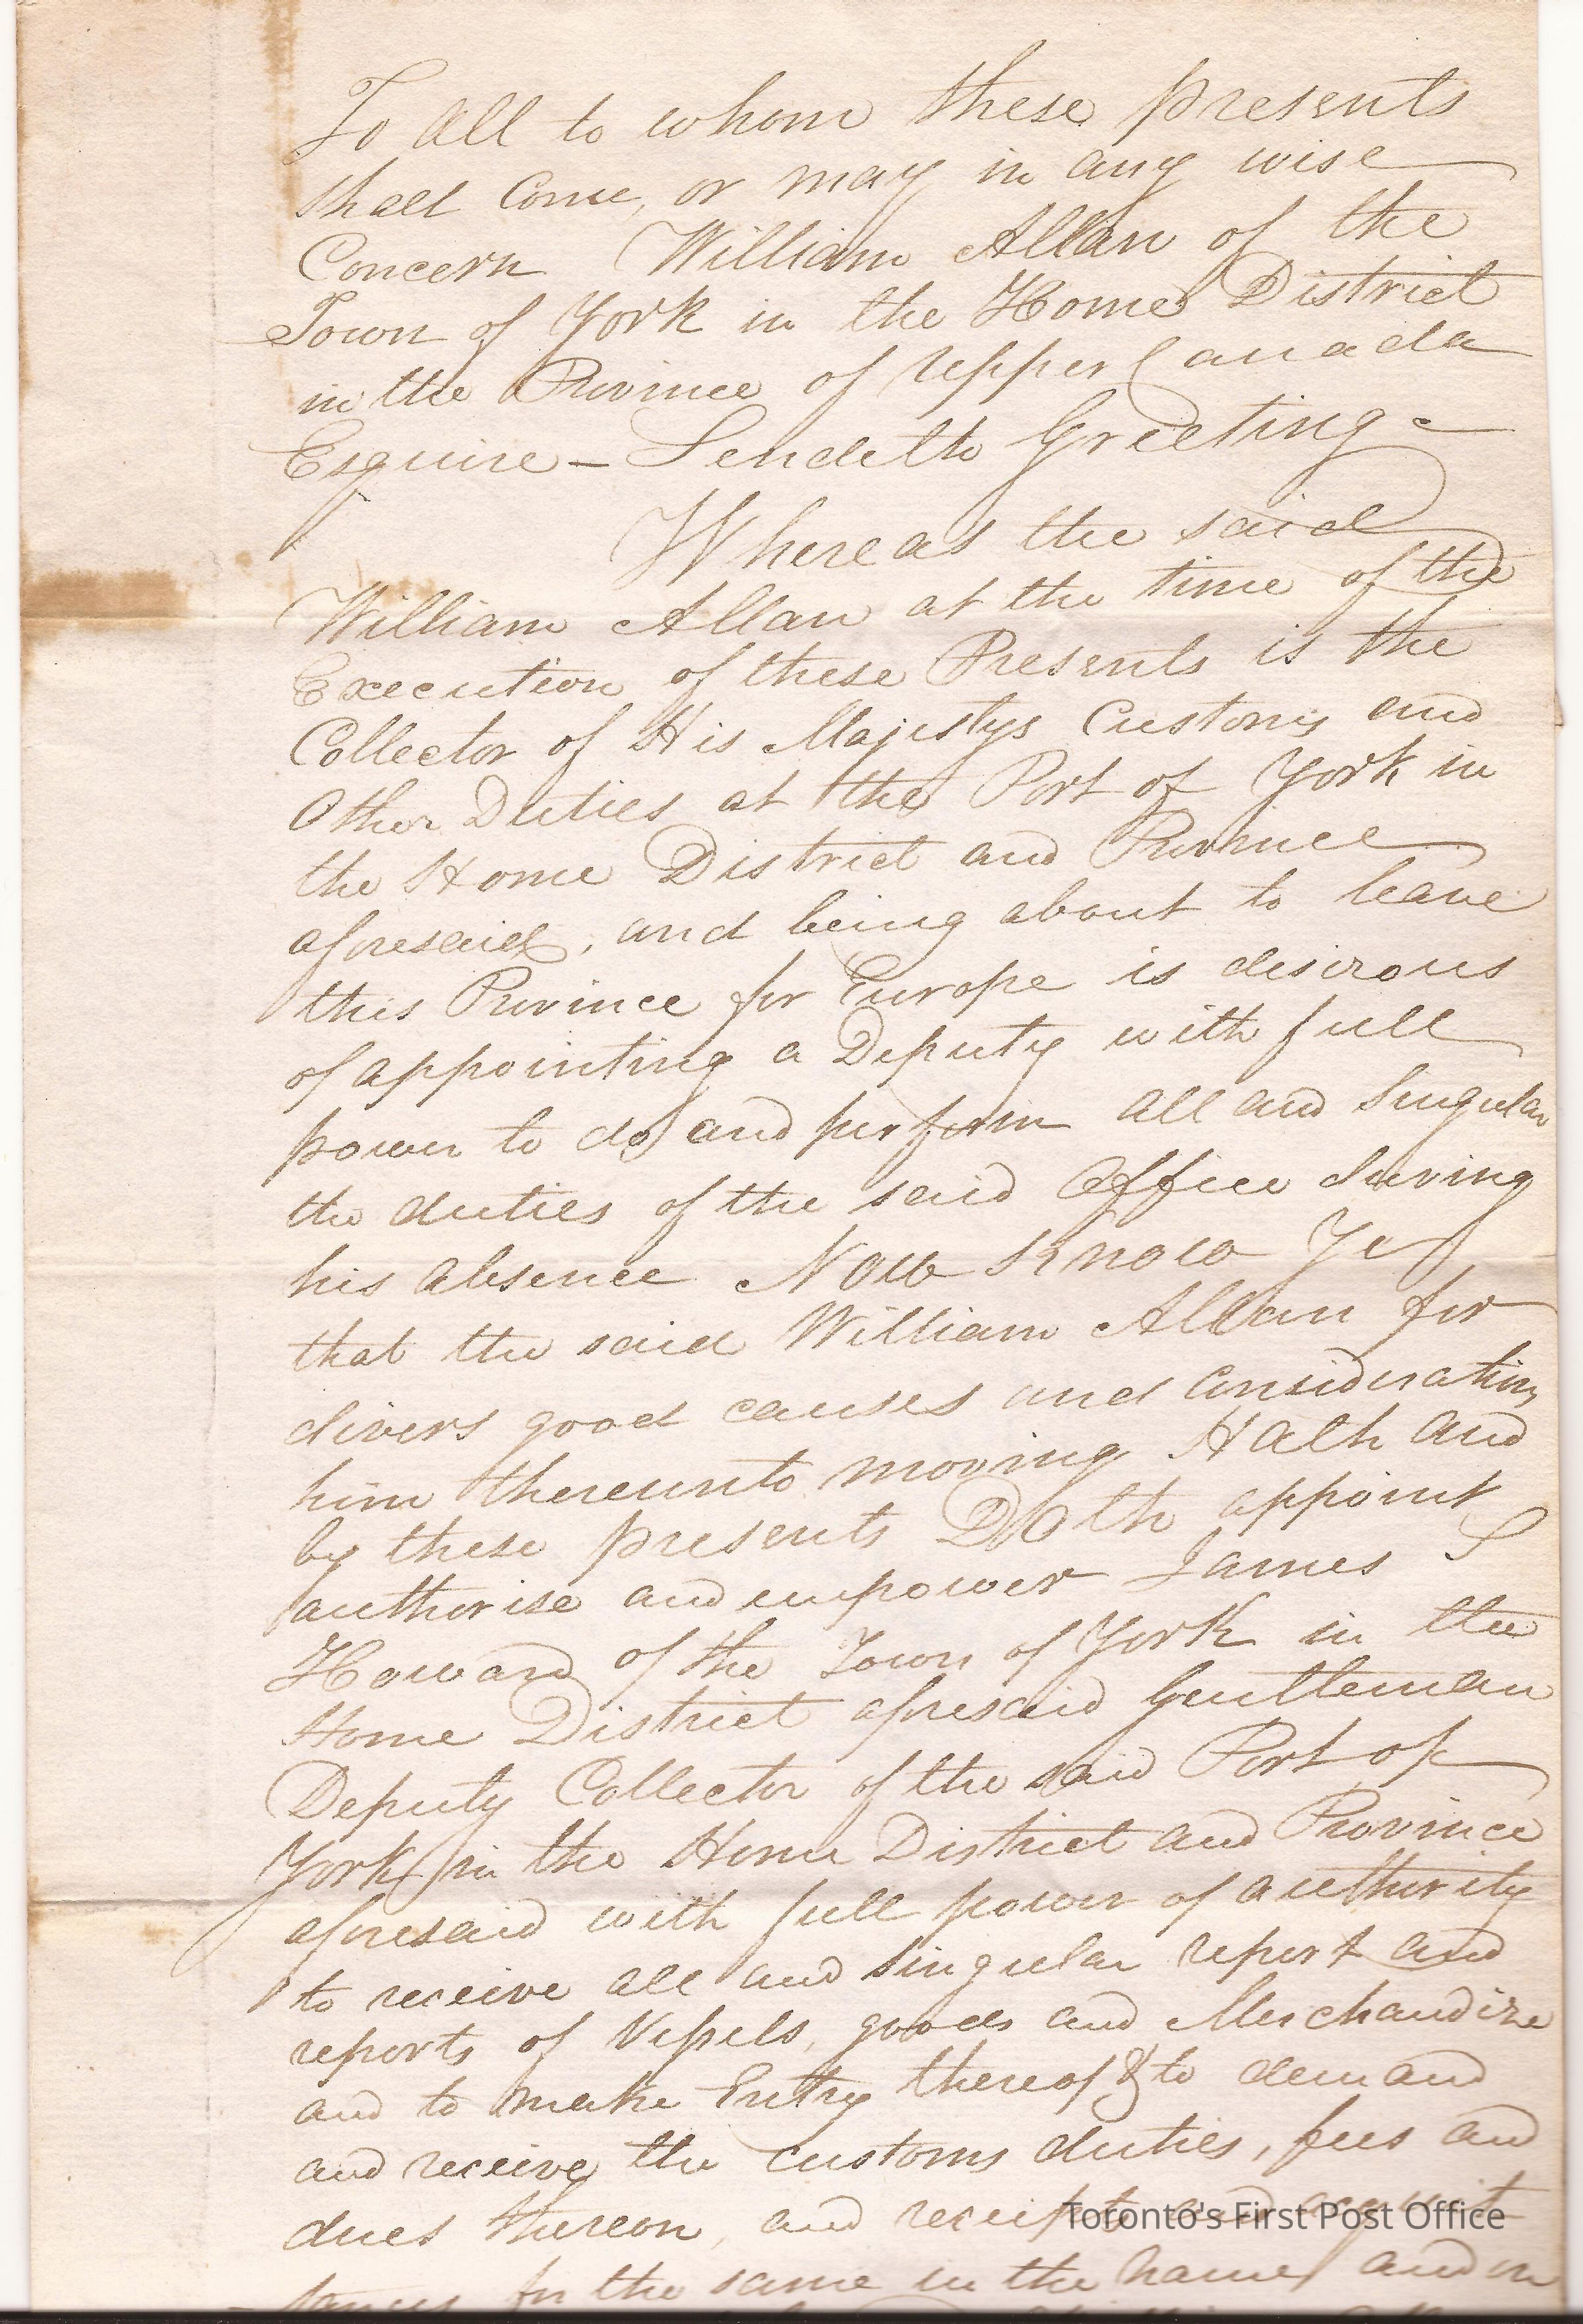 To all to whom these presents
shall Come, or may in any wise
Concern William Allan of the
Town of York in the Home District
in the Province of Upper Canada
Esquire – Sendeth Greeting –
Whereas the said
William Allan at the time of the
Execution of these Presents is the
Collector of His Majestys Customs and
Other Duties at the Port of York in
the Home District and Province
aforesaid, and being about to leave
this Province for Europe is desirous
of appointing a Deputy with full
power to do and perform all and Singular
the duties of the said Office during
his absence Now Know Ye
that the said William Allan for
divers good causes and Considerations
him thereunto moving Hath and
by these presents Doth appoint
authorise and empower James S
Howard of the Town of York in the
Home District aforesaid Gentleman
Deputy Collector of the said Port of
York in the Home District and Province
aforesaid with full power of authority
to receive all and singular report and
reports of Vessels, goods and Merchandize
and to make Entry thereof & to demand
and receive the customs duties, fees and
dues thereon, and receipts and acquit
tances for the same in the name and in
Toronto's First Post Office